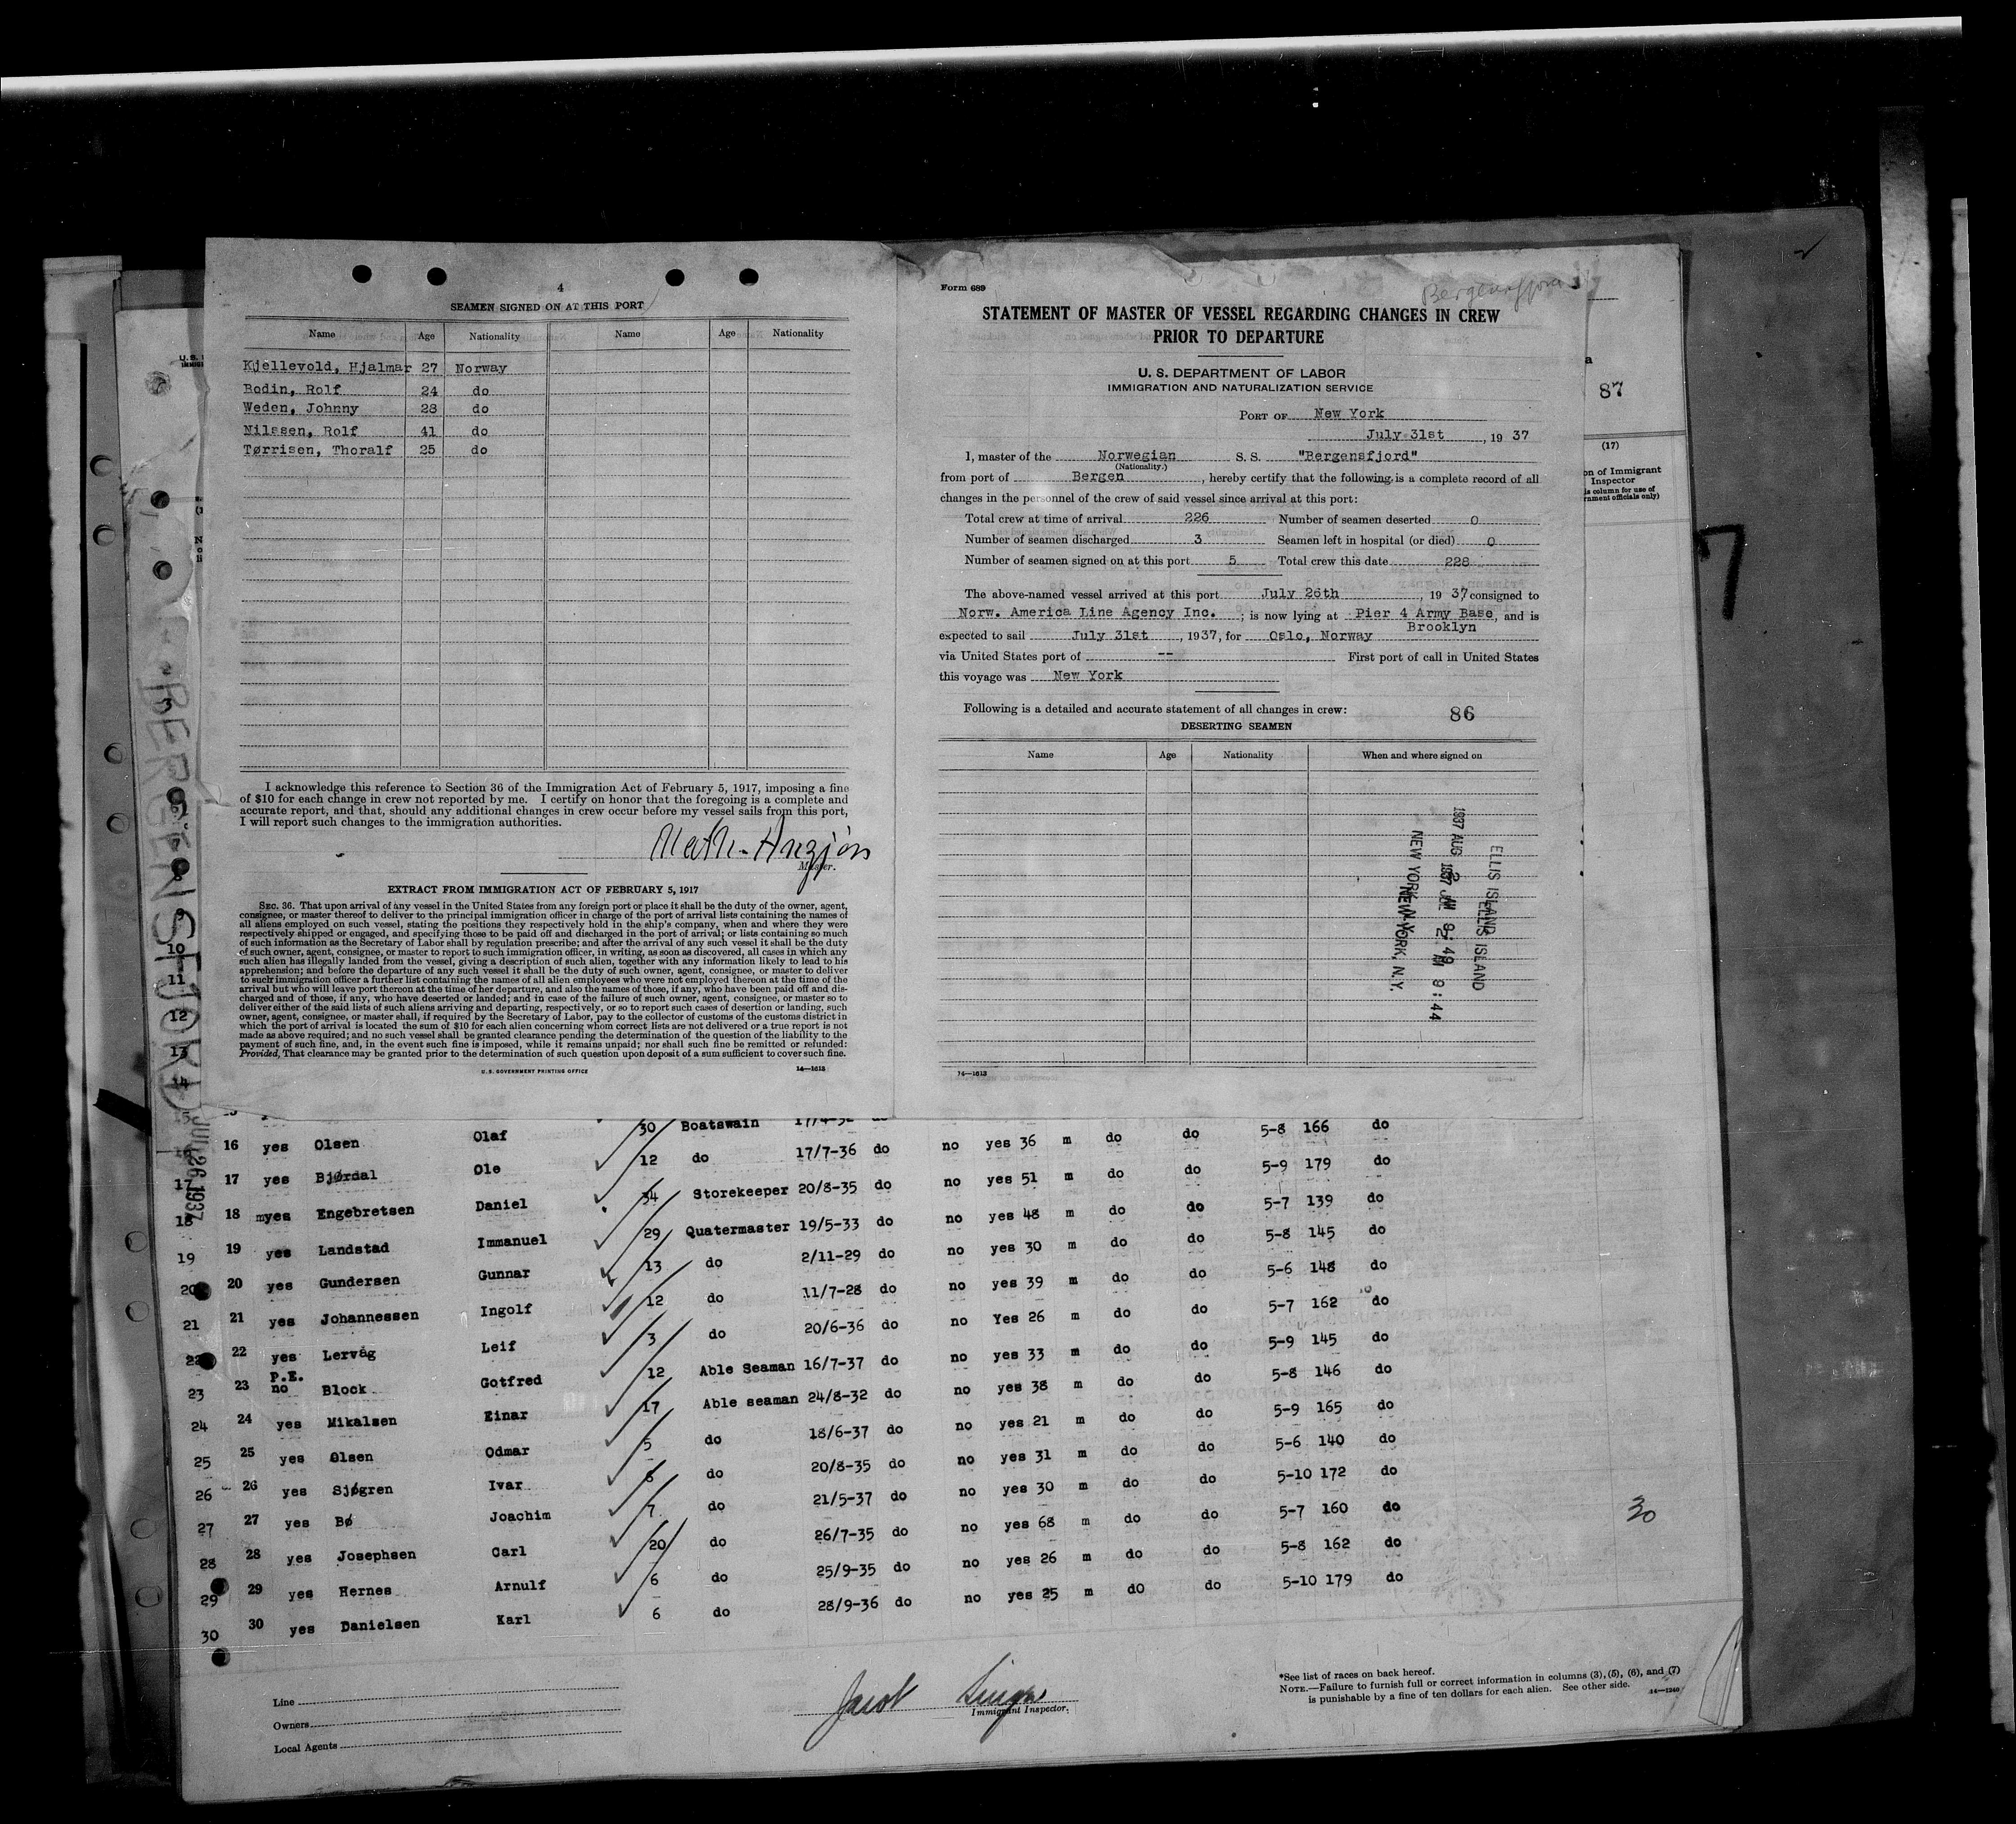 4
SEAMEN SIGNED ON AT THIS PORT
Name Age Nationality Name Age Nationality
Kjellevold, Hjalmar 27 Norway
Bodin, Rolf 24 do
Weden, Johnny 28 do
Nilssen, Rolf 41 do
Tørrisen, Thoralf 25 do
I acknowledge this reference to Section 36 of the Immigration Act of February 5, 1917, imposing a fine
of $10 for each change in crew not reported by me. I certify on honor that the foregoing is a complete and
accurate report, and that, should any additional changes in crew occur before my vessel sails from this port,
I will report such changes to the immigration authorities.
Master.
EXTRACT FROM IMMIGRATION ACT OF FEBRUARY 5, 1917
SEC. 36. That upon arrival of any vessel in the United States from any foreign port or place it shall be the duty of the owner, agent,
consignee, or master thereof to deliver to the principal immigration officer in charge of the port of arrival lists containing the names of
all aliens employed on such vessel, stating the positions they respectively hold in the ship's company, when and where they were
respectively shipped or engaged, and specifying those to be paid off and discharged in the port of arrival; or lists containing so much
of such information as the Secretary of Labor shall by regulation prescribe; and after the arrival of any such vessel it shall be the duty
of such owner, agent, consignee, or master to report to such immigration officer, in writing, as soon as discovered, all cases in which any
such alien has illegally landed from the vessel, giving a description of such alien, together with any information likely to lead to his
apprehension; and before the departure of any such vessel it shall be the duty of such owner, agent, consignee, or master to deliver
to such immigration officer a further list containing the names of all alien employees who were not employed thereon at the time of the
arrival but who will leave port thereon at the time of her departure, and also the names of those, if any, who have been paid off and dis-
charged and of those, if any, who have deserted or landed; and in case of the failure of such owner, agent, consignee, or master so to
deliver either of the said lists of such aliens arriving and departing, respectively, or so to report such cases of desertion or landing, such
owner, agent, consignee, or master shall, if required by the Secretary of Labor, pay to the collector of customs of the customs district in
which the port of arrival is located the sum of $10 for each alien concerning whom correct lists are not delivered or a true report is not
made as above required; and no such vessel shall be granted clearance pending the determination of the question of the liability to the
payment of such fine, and, in the event such fine is imposed, while it remains unpaid; nor shall such fine be remitted or refunded:
Provided, That clearance may be granted prior to the determination of such question upon deposit of a sum sufficient to cover such fine.
U. S. GOVERNMENT PRINTING OFFICE 14—1613
Form 689
Bergensfjord
STATEMENT OF MASTER OF VESSEL REGARDING CHANGES IN CREW
PRIOR TO DEPARTURE
U. S. DEPARTMENT OF LABOR
IMMIGRATION AND NATURALIZATION SERVICE
PORT OF New York
July 31st, 19 37
I, master of the Norwegian S. S. "Bergensfjord"
(Nationality.)
from port of Bergen, hereby certify that the following is a complete record of all
changes in the personnel of the crew of said vessel since arrival at this port:
Total crew at time of arrival 226 Number of seamen deserted 0
Number of seamen discharged 3 Seamen left in hospital (or died) 0
Number of seamen signed on at this port 5 Total crew this date 228
The above-named vessel arrived at this port July 26th, 19 37 consigned to
Norw. America Line Agency Inc.; is now lying at Pier 4 Army Base, and is
Brooklyn
expected to sail July 31st, 1937, for Oslo, Norway
via United States port of -- First port of call in United States
this voyage was New York
Following is a detailed and accurate statement of all changes in crew: 86
DESERTING SEAMEN
Name Age Nationality When and where signed on
14—1613
ELLIS ISLAND
1937 AUG 2 AM 8:49
NEW YORK, N.Y.
ELLIS ISLAND
NEW YORK, N.Y.
87
(17)
on of Immigrant
Inspector
is column for use of
rnment officials only)
7
BERGENSFJORD
JUL 26 1937
30 Boatswain
16 yes Olsen Olaf 12 do 17/7-36 do no yes 36 m do do 5-8 166 do
17 17 yes Bjørdal Ole 34 Storekeeper 20/8-35 do no yes 51 m do do 5-9 179 do
18 18 yes Engebretsen Daniel 29 Quatermaster 19/5-33 do no yes 48 m do do 5-7 139 do
19 19 yes Landstad Immanuel 13 do 2/11-29 do no yes 30 m do do 5-8 145 do
20 20 yes Gundersen Gunnar 12 do 11/7-28 do no yes 39 m do do 5-6 148 do
21 21 yes Johannessen Ingolf 3 do 20/6-36 do no Yes 26 m do do 5-7 162 do
22 22 yes Lervåg Leif 12 Able Seaman 16/7-37 do no yes 33 m do do 5-9 145 do
P.E.
23 23 no Block Gotfred 17 Able seaman 24/8-32 do no yes 38 m do do 5-8 146 do
24 24 yes Mikalsen Einar 5 do 18/6-37 do no yes 21 m do do 5-9 165 do
25 25 yes Olsen Odmar 8 do 20/8-35 do no yes 31 m do do 5-6 140 do
26 26 yes Sjøgren Ivar 7 do 21/5-37 do no yes 30 m do do 5-10 172 do
27 27 yes Bø Joachim 20 do 26/7-35 do no yes 68 m do do 5-7 160 do
28 28 yes Josephsen Carl 6 do 25/9-35 do no yes 26 m do do 5-8 162 do
29 29 yes Hernes Arnulf 6 do 28/9-36 do no yes 25 m dO do 5-10 179 do
30 30 yes Danielsen Karl
30
Line
Owners
Local Agents
Jacob
Immigrant Inspector.
*See list of races on back hereof.
NOTE.—Failure to furnish full or correct information in columns (3), (5), (6), and (7)
is punishable by a fine of ten dollars for each alien. See other side. 14—1240